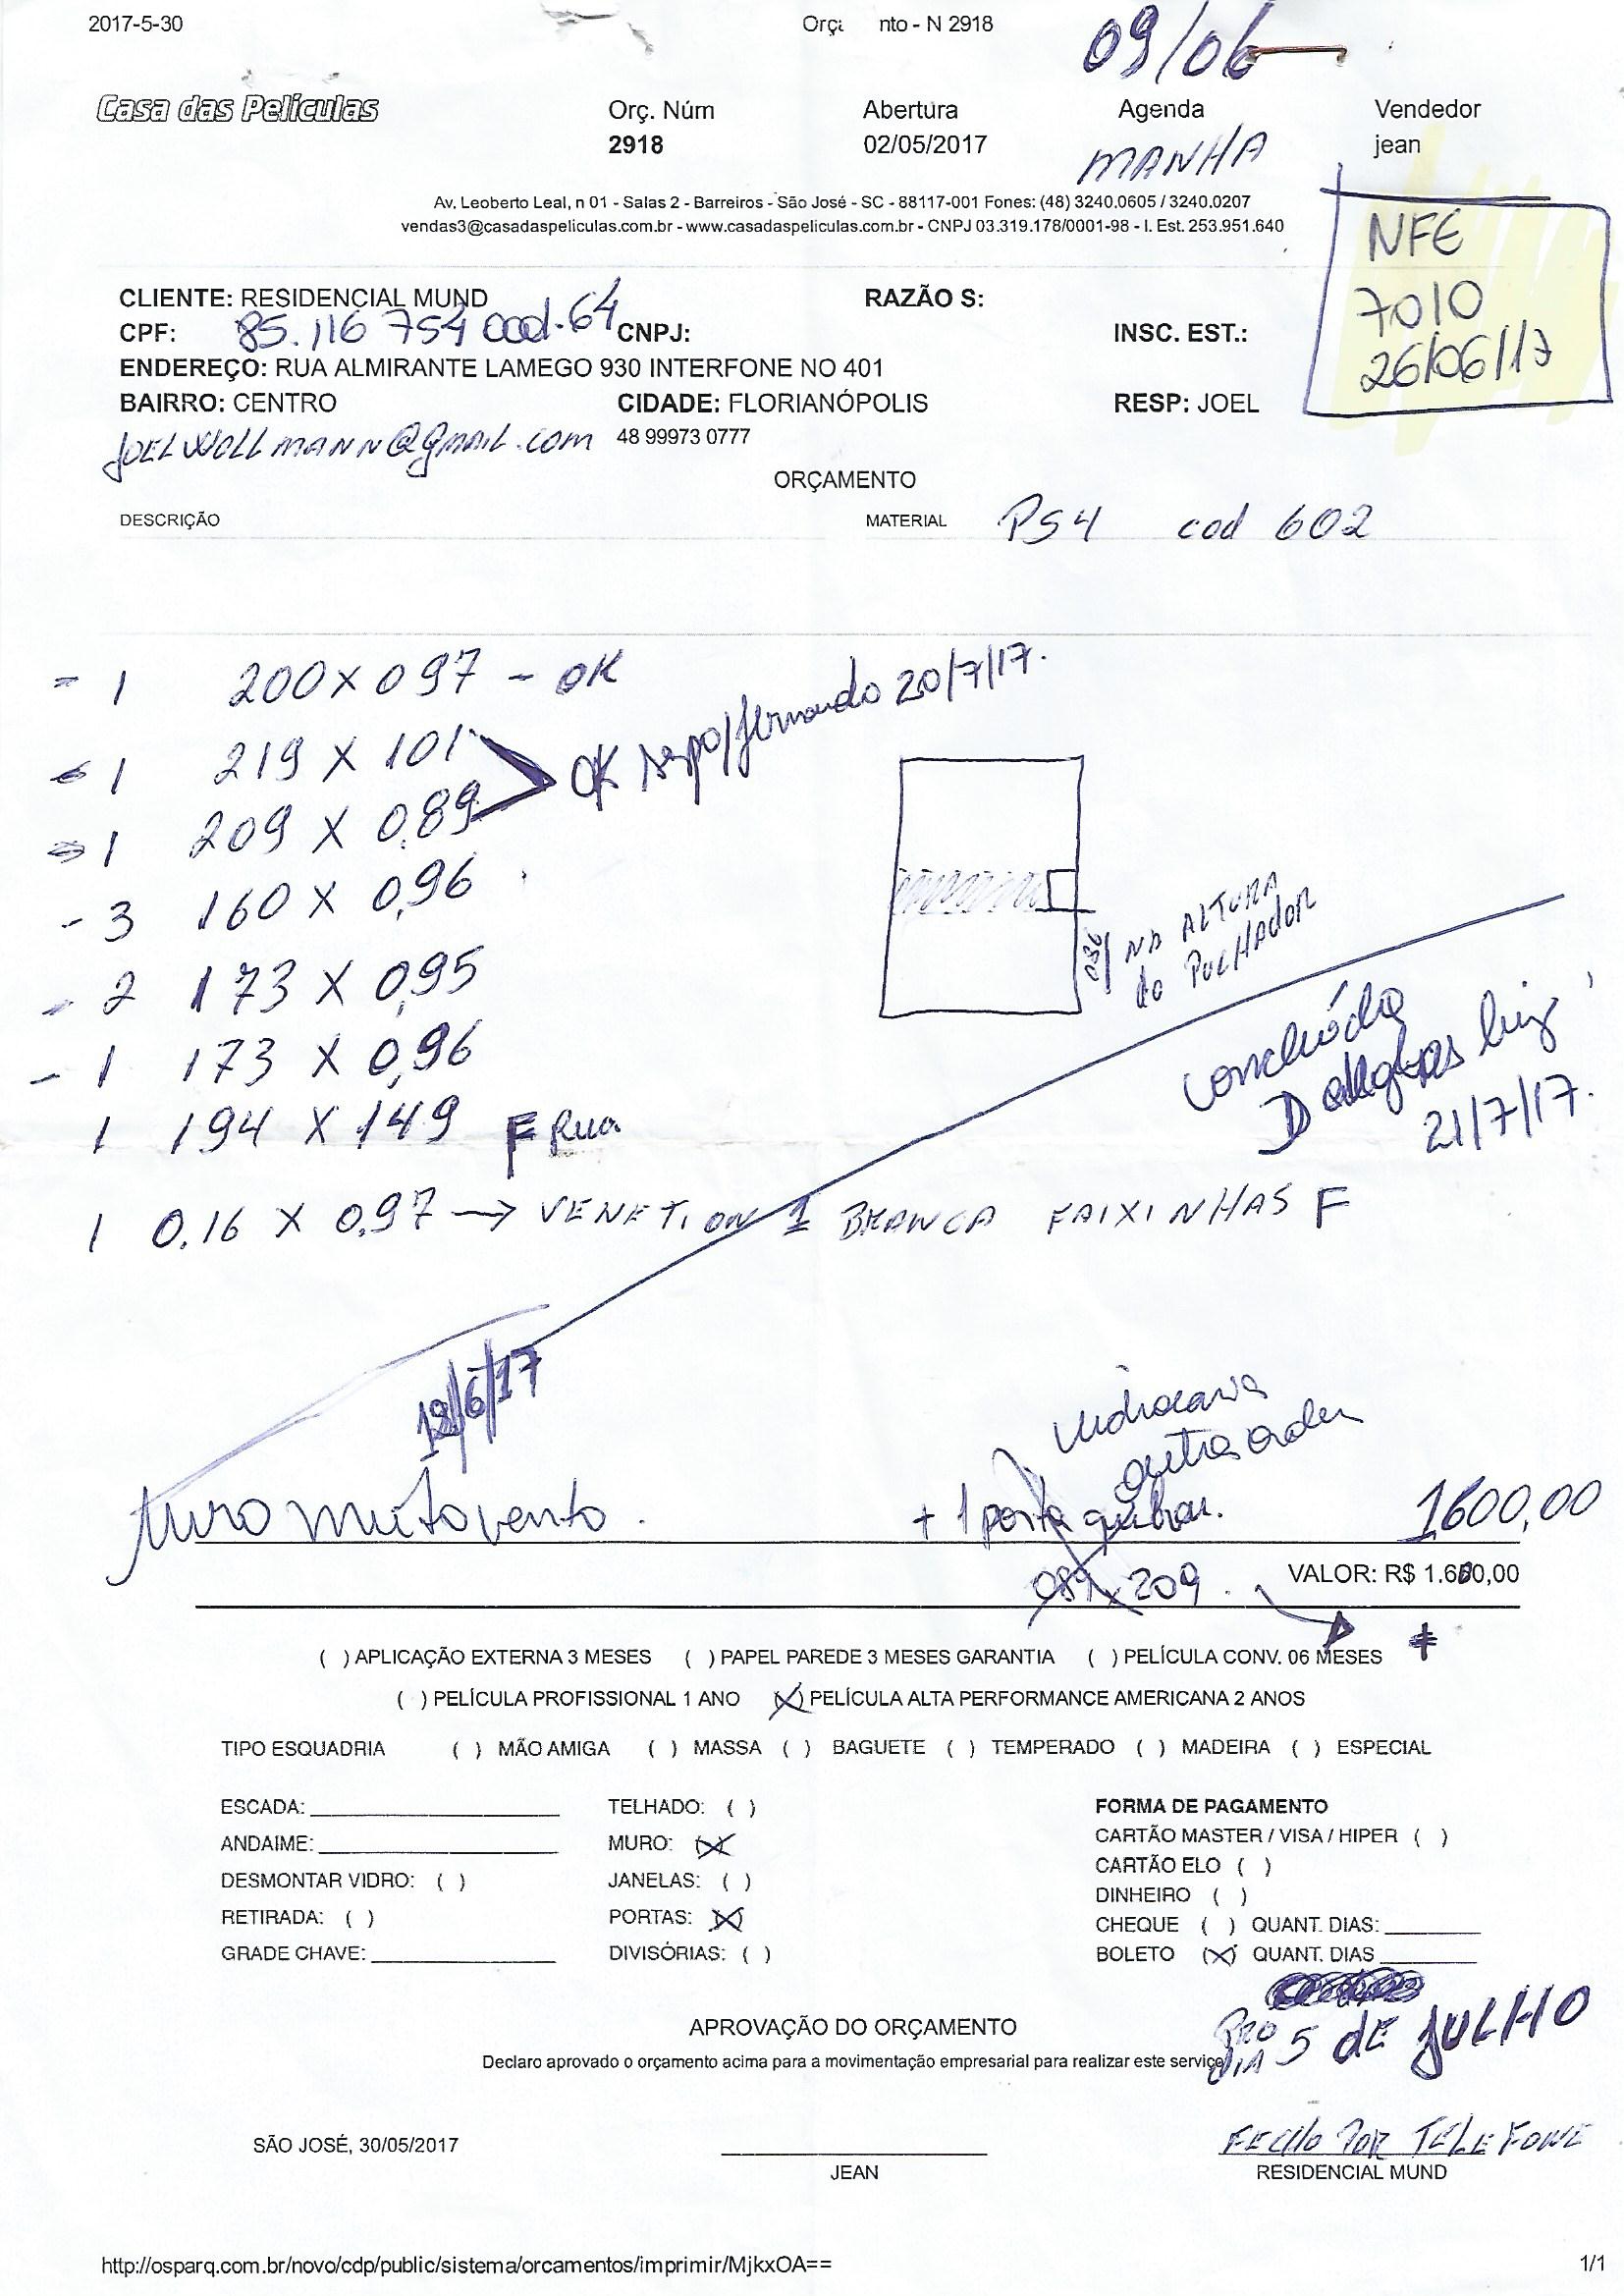 2017-5-30
Orça nto - N 2918
09/06
Casa das Películas
Orç. Núm
Abertura
Agenda
Vendedor
2918
02/05/2017
MANHA
jean
Av. Leoberto Leal, n 01 - Salas 2 - Barreiros - São José - SC - 88117-001 Fones: (48) 3240.0605 / 3240.0207
vendas3@casadaspeliculas.com.br - www.casadaspeliculas.com.br - CNPJ 03.319.178/0001-98 - I. Est. 253.951.640
NFE
7010
26/06/17
CLIENTE: RESIDENCIAL MUND
RAZÃO S:
CPF: 85.116 754 cod.64 CNPJ:
INSC. EST.:
ENDEREÇO: RUA ALMIRANTE LAMEGO 930 INTERFONE NO 401
BAIRRO: CENTRO
CIDADE: FLORIANÓPOLIS
RESP: JOEL
JOELWOLLMANN@gmail.com 48 99973 0777
ORÇAMENTO
DESCRIÇÃO
MATERIAL PS4 cod 602
- 1 200 X 097 - OK
- 1 219 X 101
- 1 209 X 0,89
OK /fernando 20/7/17.
- 3 160 X 0,96
- 2 173 X 0,95
- 1 173 X 0,96
1 194 X 149 F Rua
1 0,16 X 0,97 → VENETION 1 BRANCA FAIXINHAS F
NA ALTURA
do PUCHADOR
21/7/17.
18/6/17
muito vento.
outra ordem
+ 1 porta
1600,00
089 x 209.
VALOR: R$ 1.600,00
( ) APLICAÇÃO EXTERNA 3 MESES ( ) PAPEL PAREDE 3 MESES GARANTIA ( ) PELÍCULA CONV. 06 MESES
( ) PELÍCULA PROFISSIONAL 1 ANO (X) PELÍCULA ALTA PERFORMANCE AMERICANA 2 ANOS
TIPO ESQUADRIA ( ) MÃO AMIGA ( ) MASSA ( ) BAGUETE ( ) TEMPERADO ( ) MADEIRA ( ) ESPECIAL
ESCADA:
TELHADO: ( )
FORMA DE PAGAMENTO
ANDAIME:
MURO: (X)
CARTÃO MASTER / VISA / HIPER ( )
CARTÃO ELO ( )
DESMONTAR VIDRO: ( )
JANELAS: ( )
DINHEIRO ( )
RETIRADA: ( )
PORTAS: (X)
CHEQUE ( ) QUANT. DIAS:
GRADE CHAVE:
DIVISÓRIAS: ( )
BOLETO (X) QUANT. DIAS
PRO DIA 5 DE JULHO
APROVAÇÃO DO ORÇAMENTO
Declaro aprovado o orçamento acima para a movimentação empresarial para realizar este serviço
SÃO JOSÉ, 30/05/2017
FECHO POR TELEFONE
JEAN
RESIDENCIAL MUND
http://osparq.com.br/novo/cdp/public/sistema/orcamentos/imprimir/MjkxOA==
1/1